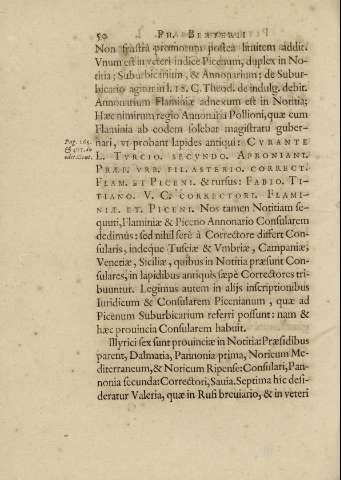 50 PH. BERTERII
Non frustra promotum postea limitem addit.
Vnum est in veteri indice Picenum, duplex in No-
titia; Suburbicarium, & Annonarium: de Subur-
bicario agitur in l. 12. C. Theod. de indulg. debit.
Annonarium Flaminiæ adnexum est in Notitia;
Hæc nimirum regio Annonaria Pollioni, quæ cum
Flaminia ab eodem solebat magistratu guber-
nari, vt probant lapides antiqui: CVRANTE
L. TVRCIO. SECVNDO. APRONIANI.
PRÆF. VRB. FIL. ASTERIO. CORRECT.
FLAM. ET PICENI. & rursus: FABIO. TI-
TIANO. V. C. CORRECTORI. FLAMI-
NIÆ. ET. PICENI. Nos tamen Notitiam se-
quuti, Flaminiæ & Piceno Annonario Consularem
dedimus: sed nihil ferè à Correctore differt Con-
sularis, indeque Tusciæ & Vmbriæ, Campaniæ,
Venetiæ, Siciliæ, quibus in Notitia præsunt Con-
sulares, in lapidibus antiquis sæpè Correctores tri-
buuntur. Legimus autem in alijs inscriptionibus
Iuridicum & Consularem Picenianum, quæ ad
Picenum Suburbicarium referri possunt: nam &
hæc prouincia Consularem habuit.
Illyrici sex sunt prouinciæ in Notitia: Præsidibus
parent, Dalmatia, Pannonia prima, Noricum Me-
diterraneum, & Noricum Ripense: Consulari, Pan-
nonia secunda: Correctori, Sauia. Septima hîc desi-
deratur Valeria, quæ in Rufi breuiario, & in veteri